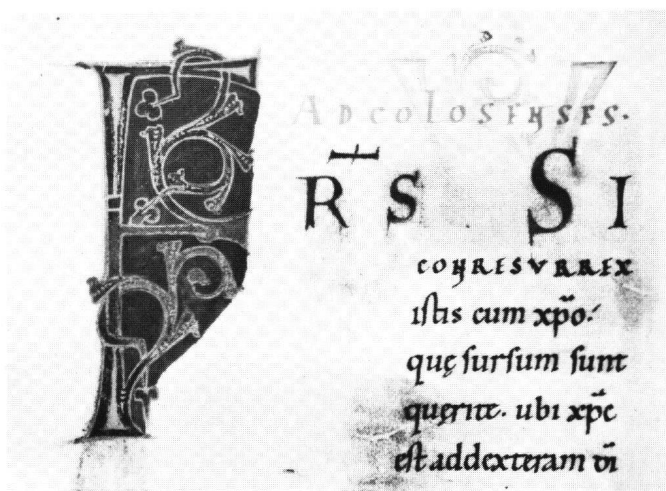 AD COLOSENSES·
F R̄S SI
CONRESURREX
istis cum xp̄o·
quę sursum sunt
quęrite· ubi xp̄c
est addexteram dī